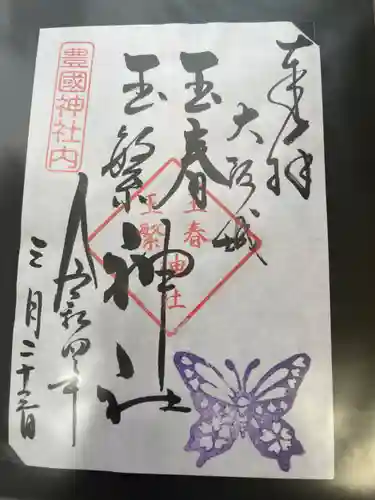 奉拝
大阪城
玉春
玉繁
神社
玉春
玉繁
神社
豊國神社内
令和四年
三月二十三日